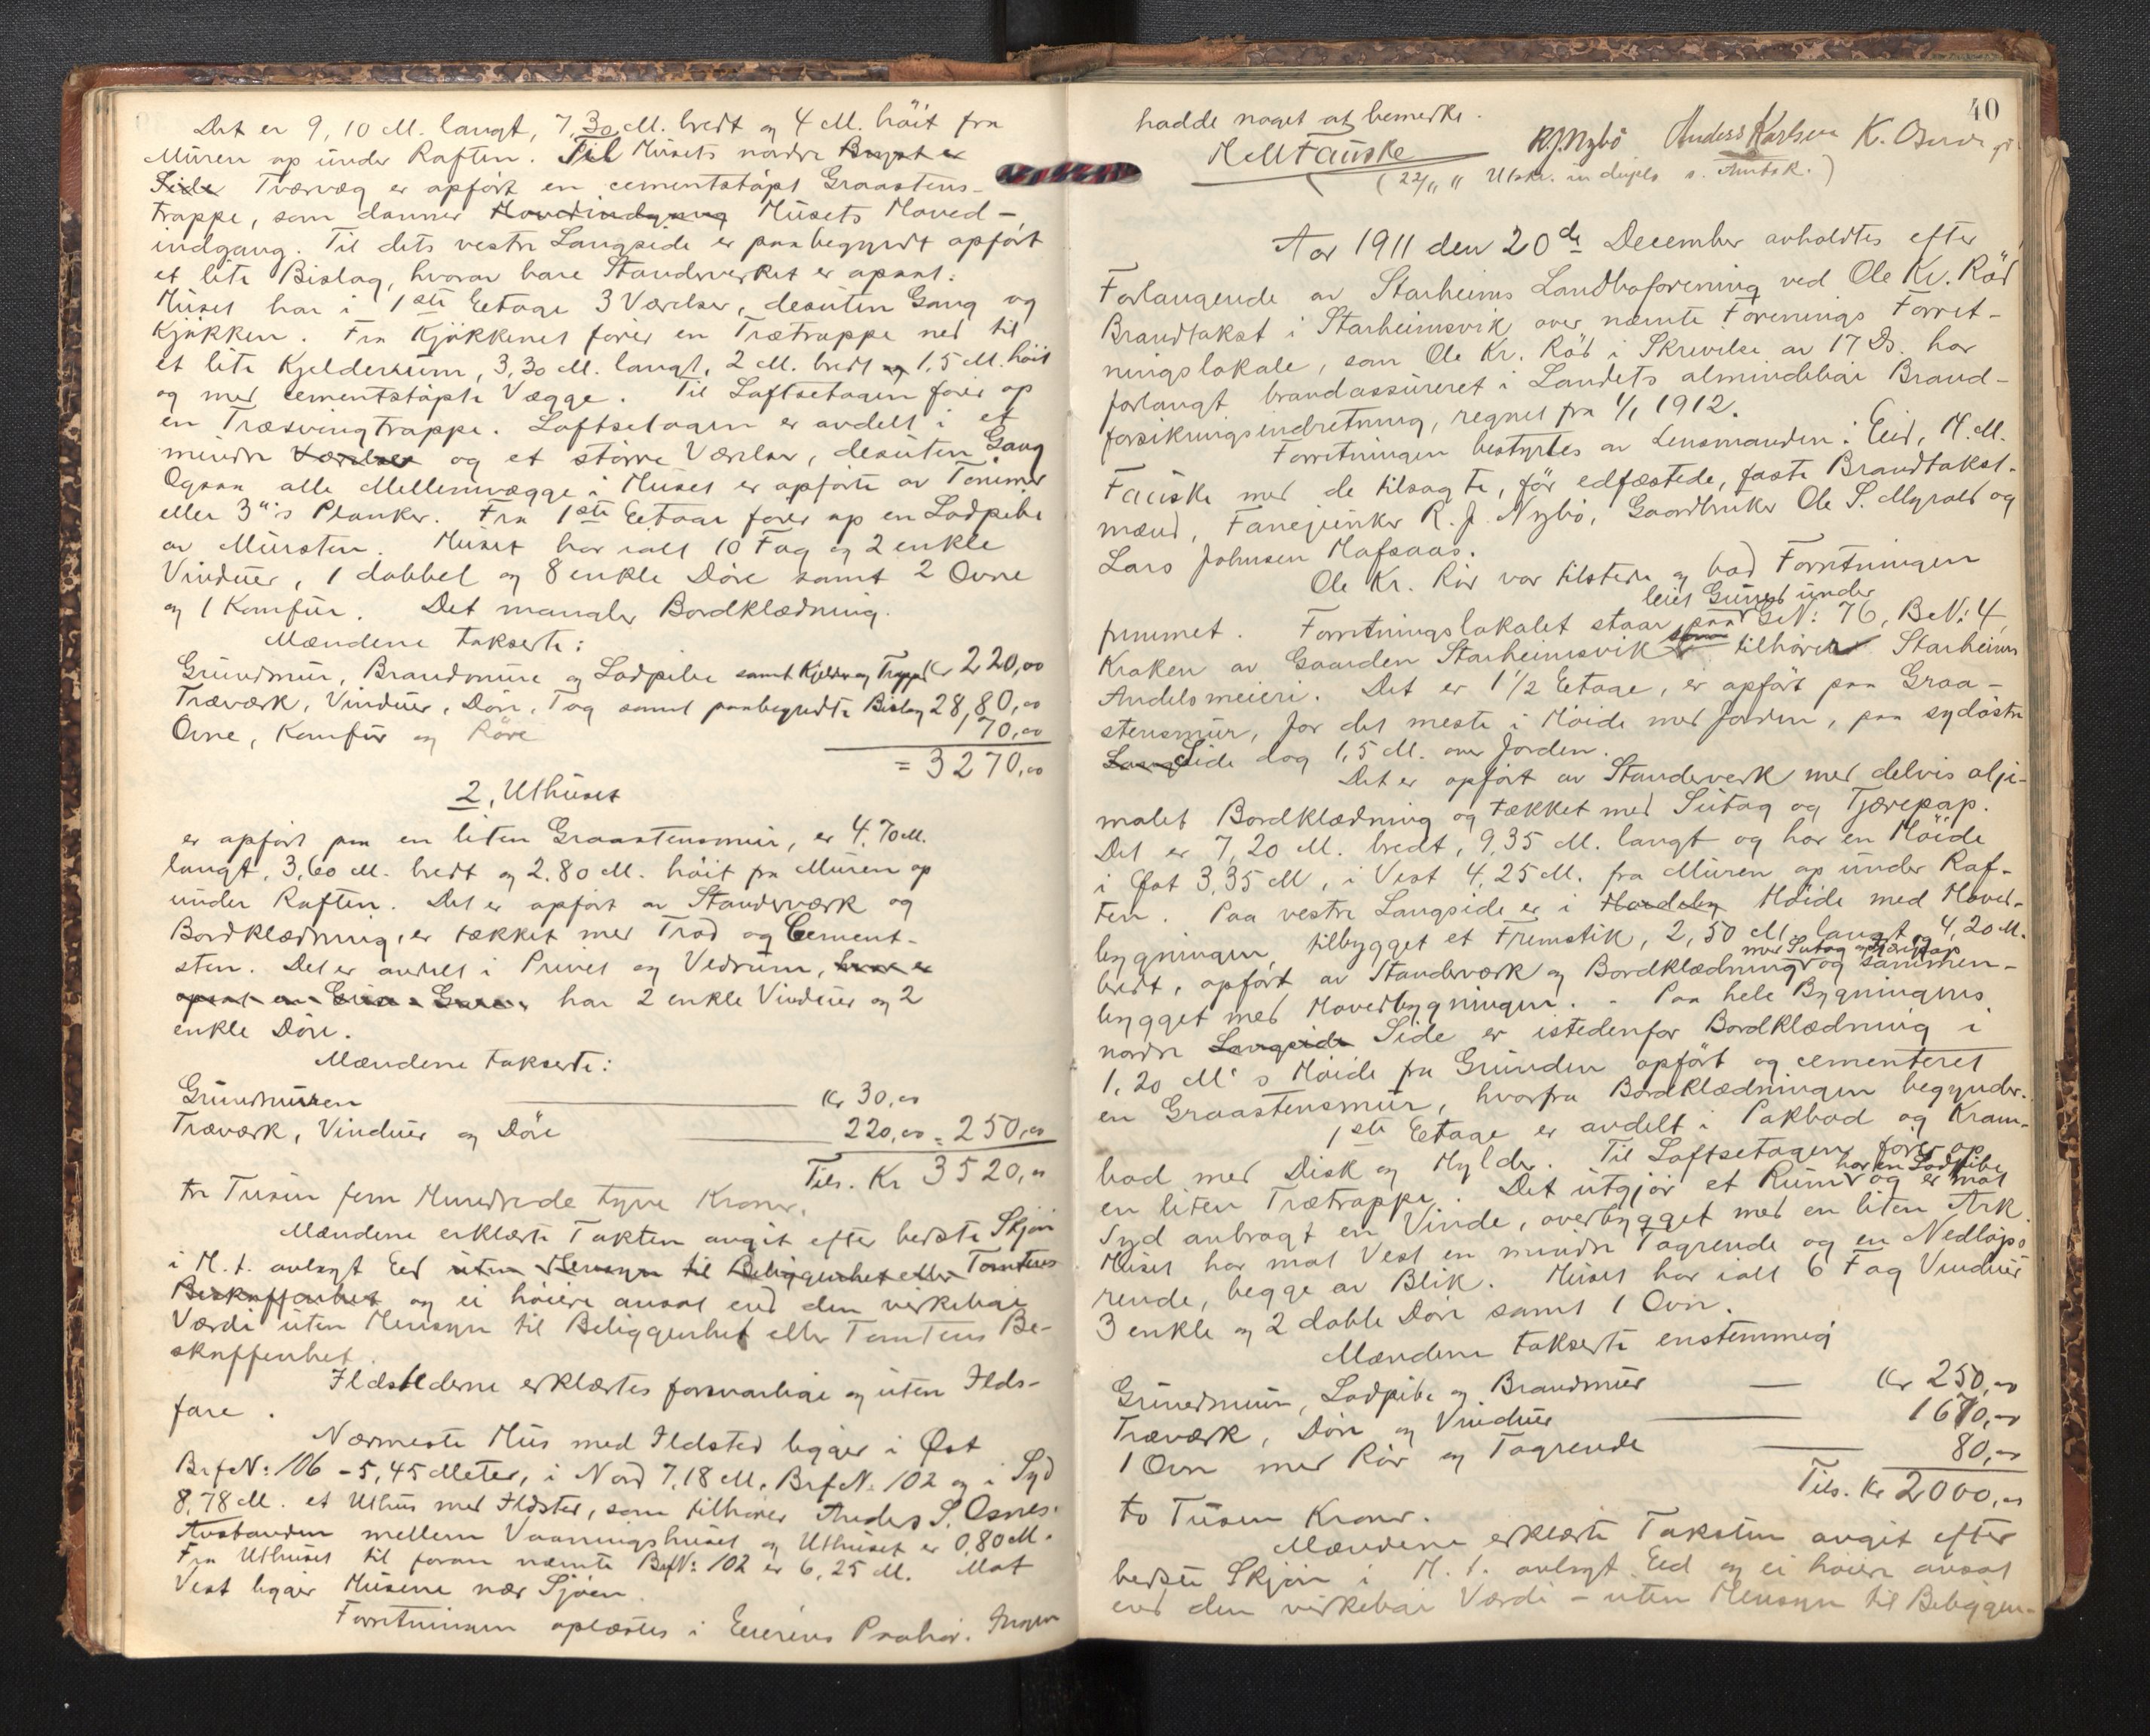 Det er 9,10 M. langt, 7,30 M. bredt og 4 M. höit fra
Muren op under Raften. Til Husets nordre
Side Tværvæg er opfört en cementstöpt Graastens-
trappe, som danner Hovedindgang Husets Hoved-
indgang. Til dets vestre Langside er paabegyndt opfört
et lite Bislag, hvorav bare Standerverket er opsat.
Huset har i 1ste Eetage 3 Værelser, desuten Gang og
Kjökken. Fra Kjökkenet förer en Trætrappe ned til
et lite Kjelderrum, 3,30 M. langt, 2 M. bredt og 1,5 M. höit
og med cementstöpte Vægge. Til Loftsetagen förer op
en Træsvingtrappe. Loftsetagen er avdelt i et
mindre Værelser og et större Værelse, desuten Gang
Ogsaa alle Mellemvægge i Huset er opförte av Tømmer
eller 3"s Planker. Fra 1ste Eetage förer op en Lodpibe
av Mursten. Huset har ialt 10 Fag og 2 enkle
Vinduer, 1 dobbel og 8 enkle Döre samt 2 Ovne
og 1 Komfur. Det mangler Bordklædning.
Mændene takserte:
Grundmur, Brandmure og Lodpibe samt Kjelder og Trappe Kr 220,00
Træværk, Vinduer, Döre, Tag samt paabegyndte Bislag 2880,00
Ovne, Komfur og Röre 170,00
= 3270,00
2, Uthuset
er opfört paa en liten Graastensmur, er 4,70 M.
langt, 3,60 M. bredt og 2,80 M. höit fra Muren op
under Raften. Det er opfört av Standerværk og
Bordklædning, er tækket med Trod og Cement-
sten. Det er avdelt i Privet og Vedrum,
har 2 enkle Vinduer og 2
enkle Döre.
Mændene takserte:
Grundmuren Kr 30,00
Træværk, Vinduer og Döre 220,00 = 250,00
Tils. Kr 3520,00
tre Tusen fem Hundrede tyve Kroner.
Mændene erklærte Taksten avgit efter bedste Skjön
i H. t. avlagt Eed uten Hensyn til Beliggenhet eller Tomtens
Beskaffenhet og ei höiere ansat end den virkelige
Værdi uten Hensyn til Beliggenhet eller Tomtens Be-
skaffenhet.
Ildstederne erklærtes forsvarlige og uten Ilds-
fare.
Nærmeste Hus med Ildsted ligger i Öst
BrfN: 106 - 5,45 Meter, i Nord 7,18 M. BrfN: 102 og i Syd
8,78 M. et Uthus med Ildsted, som tilhörer Anders S. Osnes.
Avstanden mellem Vaaningshuset og Uthuset er 0,80 M.
Fra Uthuset til foran nævnte BrfN: 102 er 6,25 M. Mot
Vest ligger Husene nær Sjöen.
Forretningen oplæstes i Eierens Paahör. Ingen
40
hadde noget at bemerke.
H M Fauske R.J. Nybö Anders Karlsen K. Osnes
(22/11 11 Utskr. in duplo s. Amtsk.)
Aar 1911 den 20de December avholdtes efter
Forlangende av Starheims Landboforening ved Ole Kr. Röd
Brandtakst i Starheimsvik over nævnte Forenings Forret-
ningslokale, som Ole Kr. Röd i Skrivelse av 17 Ds. har
forlangt brandassureret i Landets almindelige Brand-
forsikringsindretning, regnet fra 1/1 1912.
Forretningen bestyrtes av Lensmanden i Eid, H. M.
Fauske med de tilsagte, för edfæstede, faste Brandtakst-
mænd, Fanejunker R. J. Nybö, Gaardbruker Ole S. Myrold og
Lars Johnsen Hafsaas.
Ole Kr. Röd var tilstede og bad Forretningen
fremmet. Forretningslokalet staar paa leiet Grund under GN: 76, BN: 4,
Kraken av Gaarden Starheimsvik som tilhörer Starheims
Andelsmeieri. Det er 1 1/2 Eetage, er opfört paa Graa-
stensmur, for det meste i Höide med Jorden, paa sydöstre
Langside dog 1,5 M. over Jorden.
Det er opfört av Standerverk med delvis olje-
malet Bordklædning og tækket med Sutag og Tjærepap.
Det er 7,20 M. bredt, 9,35 M. langt og har en Höide
i Öst 3,35 M, i Vest 4,25 M. fra Muren op under Raf-
ten. Paa vestre Langside er i Höide med Hoved-
bygningen tilbygget et Fremstik, 2,50 M. langt og 4,20 M.
bredt, opfört av Standerværk og Bordklædning med Sutag og Tjærepap og sammen-
bygget med Hovedbygningen. - Paa hele Bygningens
nordre Langside Side er istedenfor Bordklædning i
1,20 M's Höide fra Grunden opfört og cementeret
en Graastensmur, hvorfra Bordklædningen begynder.
1ste Eetage er avdelt i Pakbod og Kram-
bod med Disk og Hylder. Til Loftsetagen förer op
en liten Trætrappe. Det utgjör et Rum har en Lodpibe og er mot
Syd anbragt en Vinde, overbygget med en liten Ark.
Huset har mot Vest en mindre Tagrende og en Nedlöps-
rende, begge av Blik. Huset har ialt 6 Fag Vinduer
3 enkle og 2 doble Döre samt 1 Ovn.
Mændene takserte enstemmig
Grundmur, Lodpibe og Brandmur Kr 250,00
Træværk, Döre og Vinduer 1670,00
1 Ovn med Rör og Tagrende 80,00
Tils. Kr 2000,00
to Tusen Kroner.
Mændene erklærte Taksten avgit efter
bedste Skjön i H. t. avlagt Eed og ei höiere ansat
end den virkelige Værdi - uten Hensyn til Beliggen-